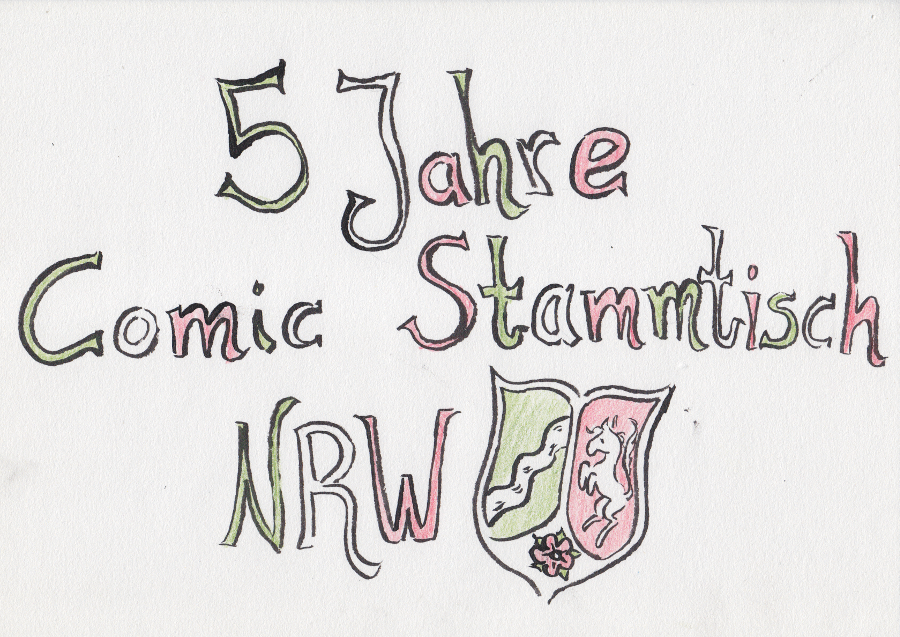 5 Jahre
Comic Stammtisch
NRW